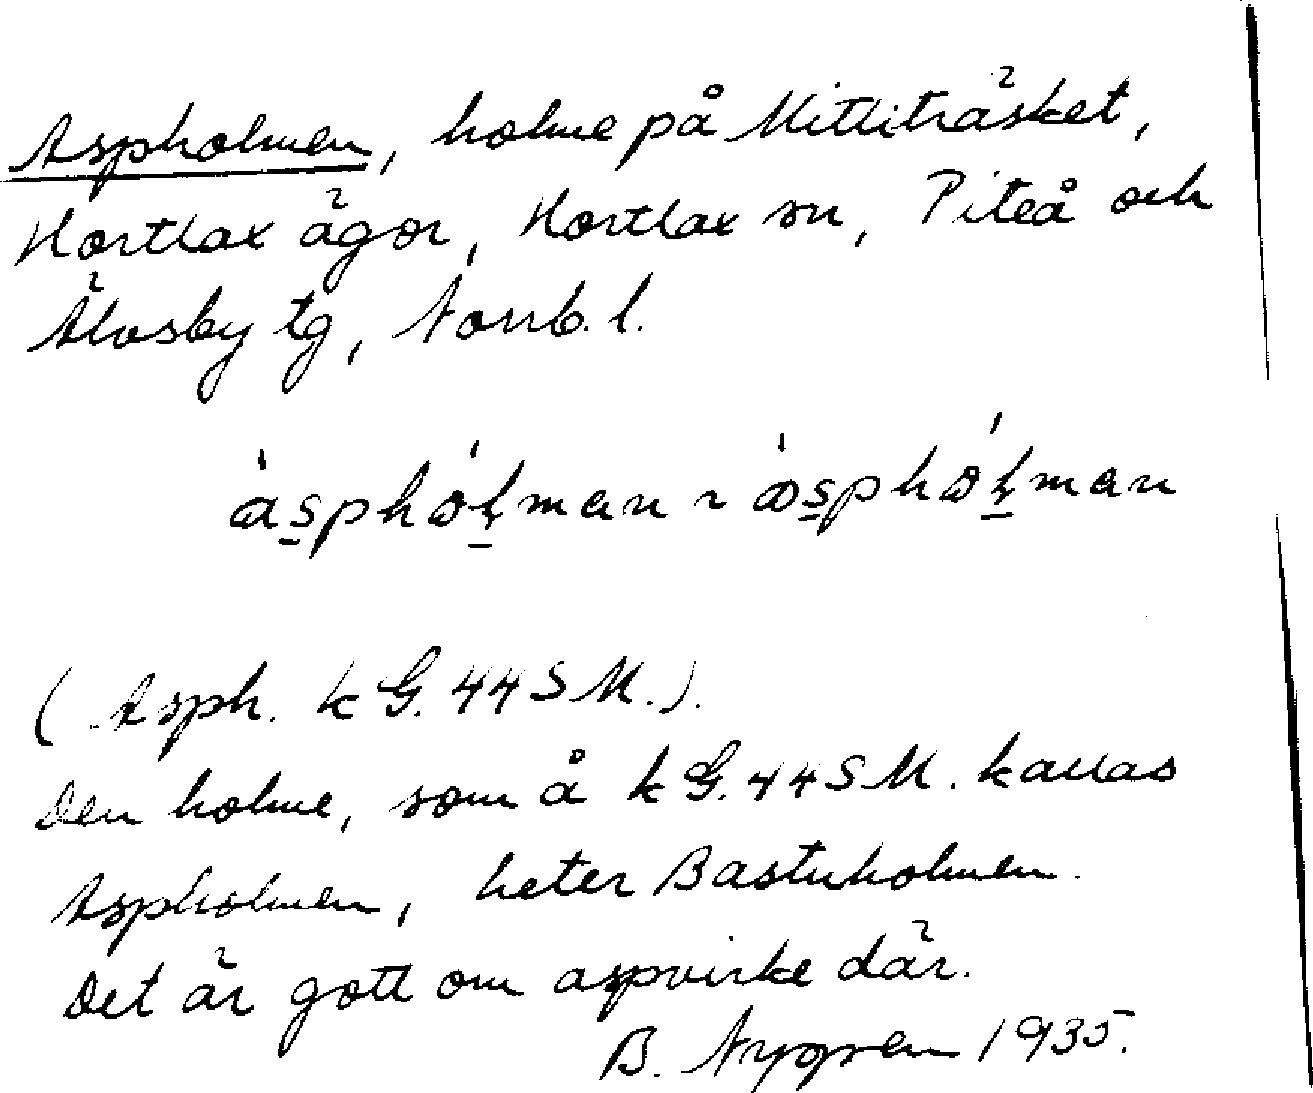 Aspholmen, holme på Mittiträsket,
Hortlax ägor, Hortlax sn, Piteå och
Älvsby tg, Norrb. l.
ásphólman ~ ǻsphólman
(Asph. k G. 44 S M.).
Den holme, som å k G. 44 S M. kallas
Aspholmen, heter Bastuholmen.
Det är gott om aspvirke där.
B. Nygren 1935.